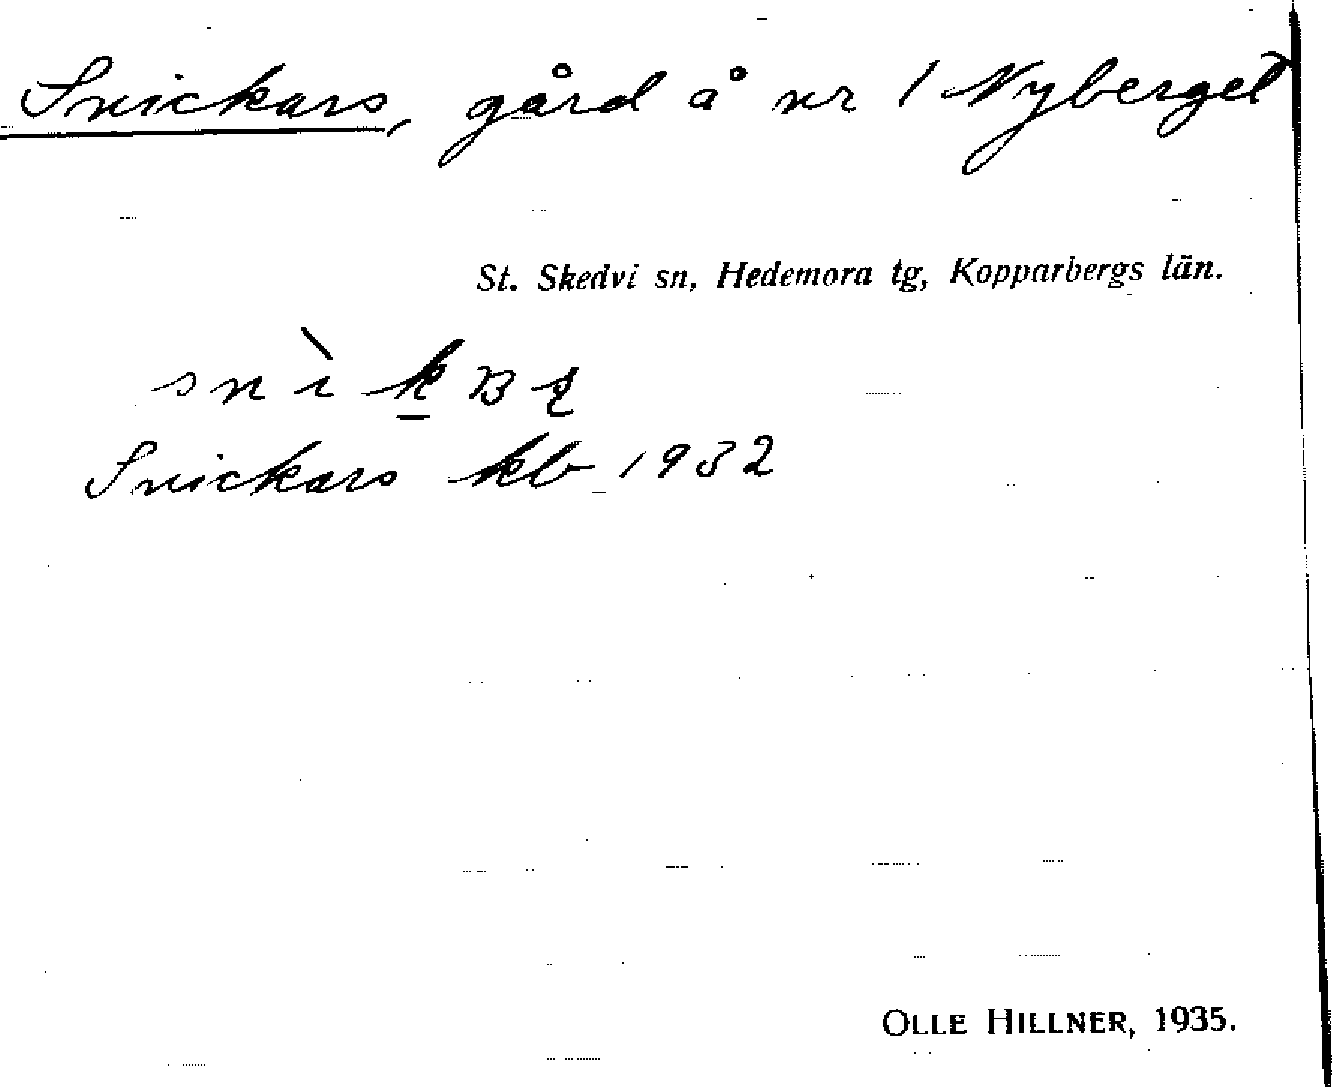 Snickars, gård å nr 1 Nyberget
St. Skedvi sn, Hedemora tg, Kopparbergs län.
Snickars kb 1932
OLLE HILLNER, 1935.